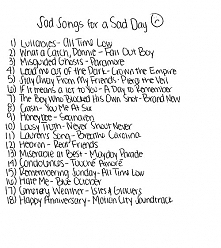 Sad Songs for a Sad Day
1) Lullabies - All Time Low
2) What a Catch, Donnie - Fall Out Boy
3) Misguided Ghosts - Paramore
4) Lead me out of the Dark - Crown the Empire
5) Stay Away From My Friends - Pierce the Veil
6) If it means a lot to You - A Day to Remember
7) The Boy Who Blocked His Own Shot - Brand New
8) Crash - You Me At Six
9) Honeybee - Seahaven
10) Lousy Truth - Never Shout Never
11) Lauren's Song - Breathe Carolina
12) Heaven - Real Friends
13) Miserable at Best - Mayday Parade
14) Condolences - Touché Amoré
15) Remembering Sunday - All Time Low
16) Hate Me - Blue October
17) Cemetery Weather - Isles & Glaciers
18) Happy Anniversary - Motion City Soundtrack